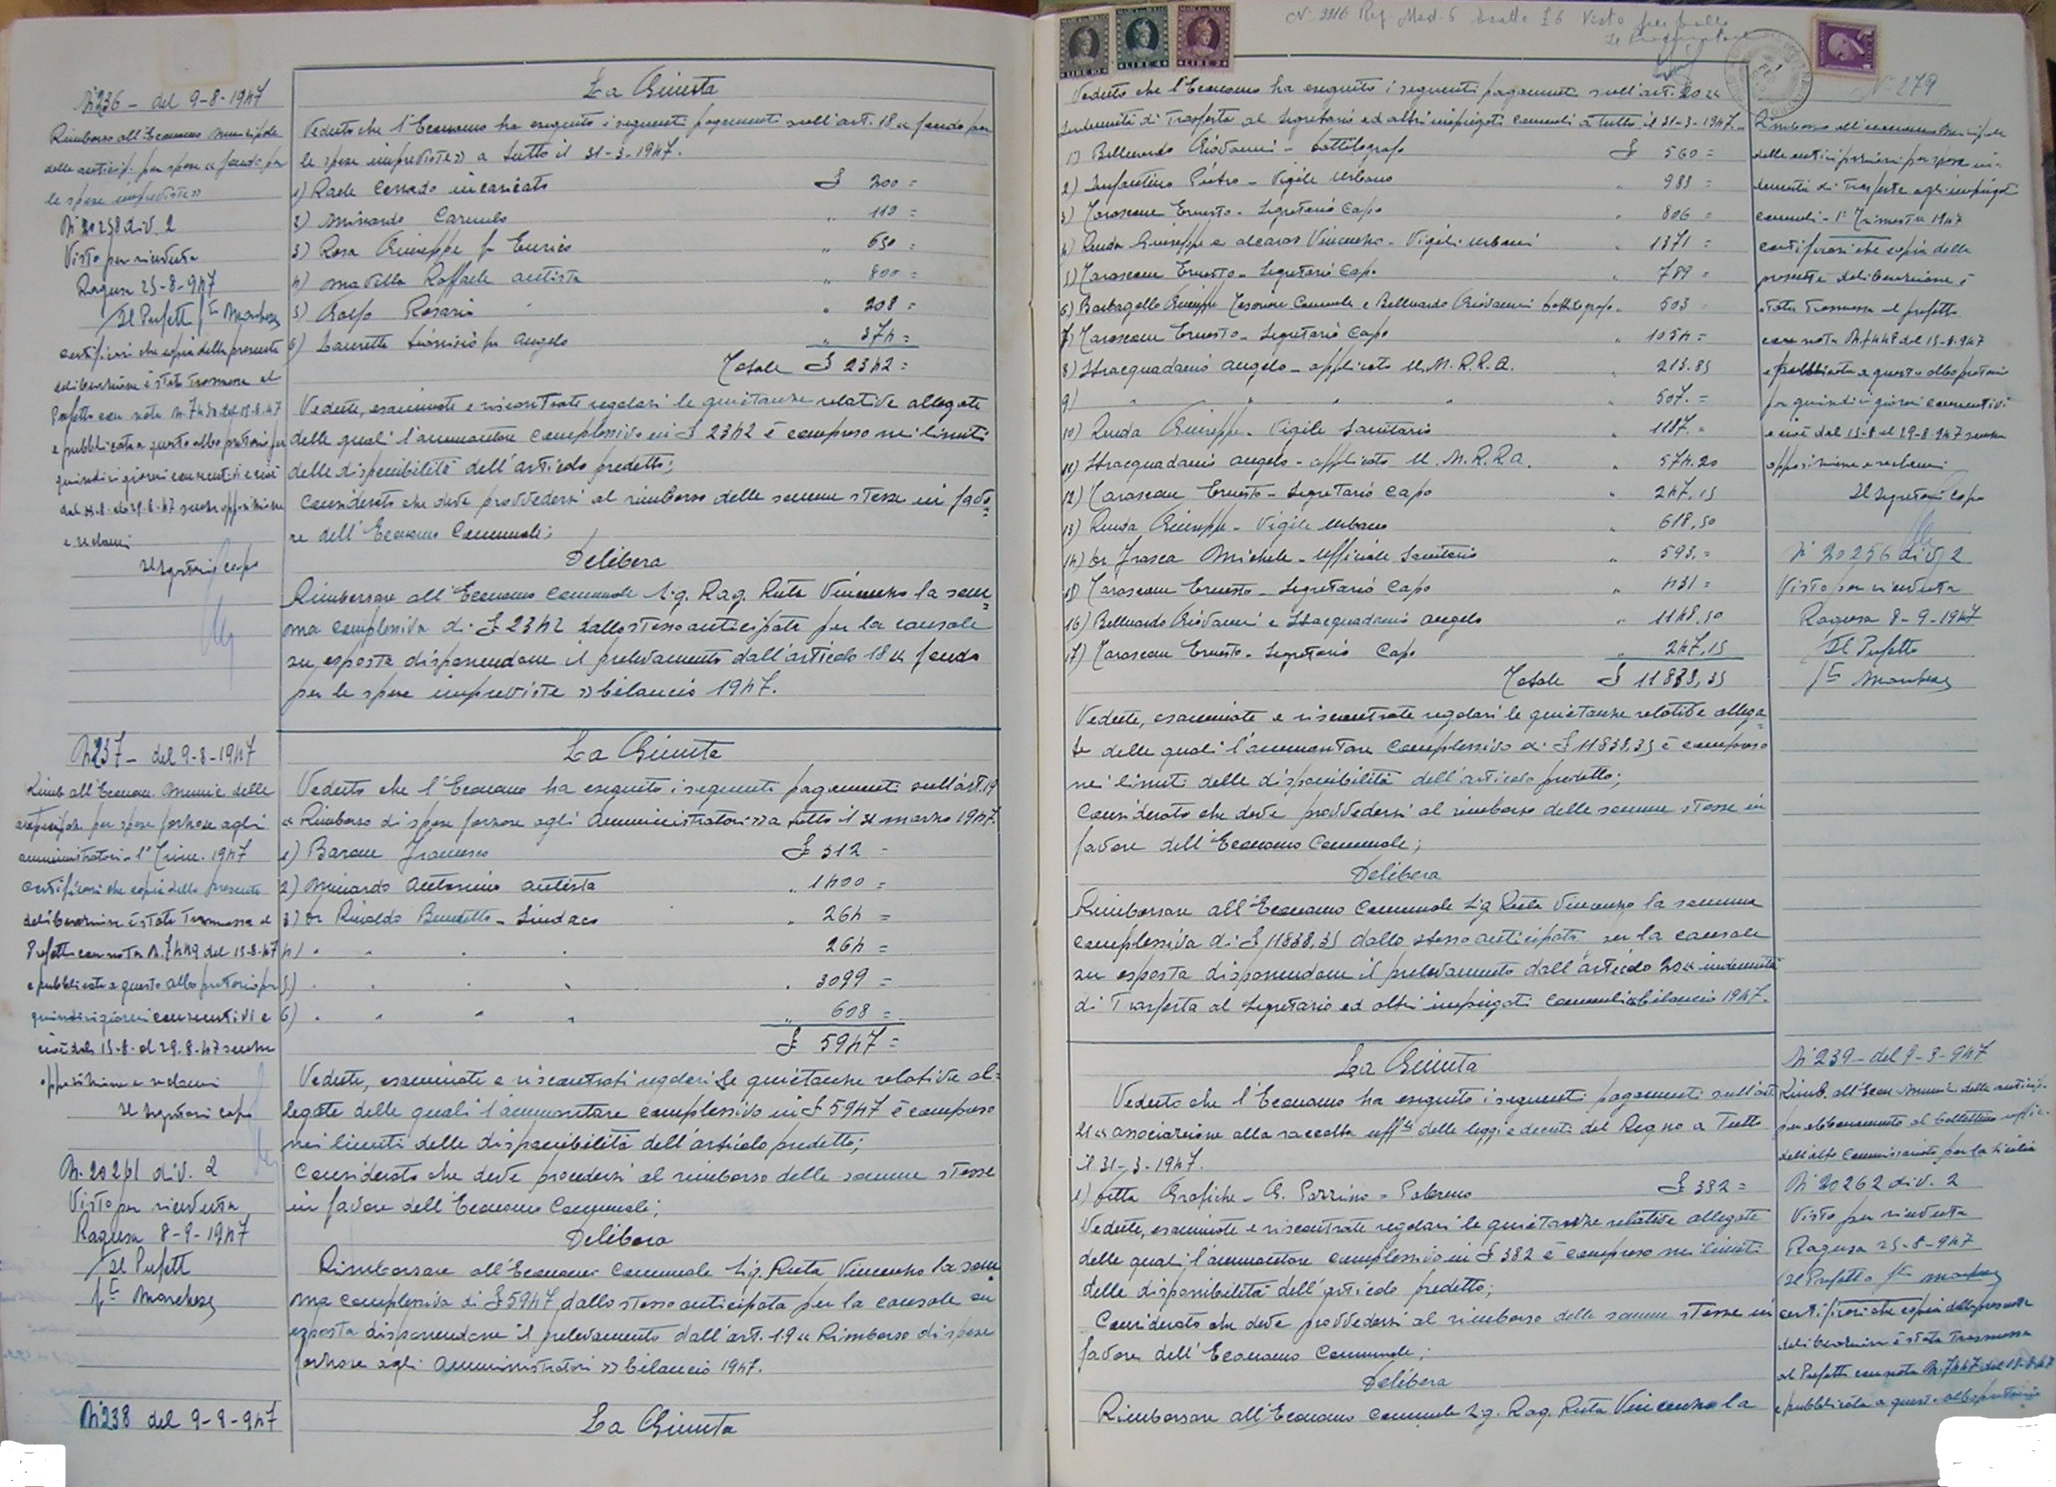 N. 236 - del 9-8-1947
Rimborso all'Economo Municipale
delle anticip. per spese "fondo per
le spese impreviste"
N. 20258 div. 2
Visto per ricevuta
Ragusa 25-8-947
Il Prefetto
certificasi che copia della presente
deliberazione è stata trasmessa al
Prefetto con nota N. 7450 del 13-8-47
e pubblicata a questo albo pretorio per
quindici giorni consecutivi e cioè
dal 15-8- al 29-8-47 senza opposizioni
e reclami
Il Segretario Capo
La Giunta
Veduto che l'Economo ha eseguito i seguenti pagamenti sull'art. 18 "fondo per
le spese impreviste" a tutto il 31-3-1947.
1) Raele Corrado incaricato £ 200 =
2) Minardo Carmelo " 110 =
3) Rosa Giuseppe fu Enrico " 650 =
4) Raffaele autista " 800 =
5) Rosario " 208 =
6) Lauretta fu Angelo " 374 =
Totale £ 2342 =
Vedute, esaminate e riscontrate regolari le quietanze relative allegate
delle quali l'ammontare complessivo in £ 2342 è compreso nei limiti
delle disponibilità dell'articolo predetto;
Considerato che deve provvedersi al rimborso delle somme stesse in favo=
re dell'Economo Comunale;
Delibera
Rimborsare all'Economo Comunale Sig. Rag. Ruta Vincenzo la som=
ma complessiva di £ 2342 dallo stesso anticipate per la causale
su esposta disponendone il prelevamento dall'articolo 18 "fondo
per le spese impreviste" bilancio 1947.
N. 237 - del 9-8-1947
Rimb. all'Econom. Munic. delle
anticipaz. per spese forzose agli
amministratori - 1° Trim. 1947
certificasi che copia della presente
deliberazione è stata trasmessa al
Prefetto con nota N. 7449 del 13-8-47
e pubblicata a questo albo pretorio per
quindici giorni consecutivi e
cioè dal 15-8- al 29-8-47 senza
opposizione e reclami
Il Segretario Capo
N. 20261 div. 2
Visto per ricevuta
Ragusa 8-9-1947
Il Prefetto
La Giunta
Veduto che l'Economo ha eseguito i seguenti pagamenti sull'art. 19
"Rimborso di spese forzose agli Amministratori" a tutto il 31 marzo 1947.
1) Barone Francesco £ 312 =
2) Minardo Antonino autista " 1400 =
3) Dr Rinaldo - Sindaco " 264 =
4) " " " 264 =
5) " " " " 3099 =
6) " " " " " 608 =
£ 5947 =
Vedute, esaminate e riscontrati regolari le quietanze relative al=
legate delle quali l'ammontare complessivo in £ 5947 è compreso
nei limiti delle disponibilità dell'articolo predetto;
Considerato che deve procedersi al rimborso delle somme stesse
in favore dell'Economo Comunale;
Delibera
Rimborsare all'Economo Comunale Sig. Ruta Vincenzo la som=
ma complessiva di £ 5947 dallo stesso anticipata per la causale su
esposta disponendone il prelevamento dall'art. 19 "Rimborso di spese
forzose agli amministratori" bilancio 1947.
N. 238 del 9-8-947
La Giunta
LIRE 10
LIRE 4
LIRE 2
N. 279
Veduto che l'Economo ha eseguito i seguenti pagamenti sull'art. 20 "
Indennità di Trasferta al Segretario ed altri impiegati Comunali a tutto il 31-3-1947.
1) Belluardo Giovanni - £ 560 =
2) Infantino Pietro - Vigile Urbano " 983 =
3) Ernesto - Segretario Capo " 806 =
4) Ruuda Giuseppe e Alcaras Vincenzo - Vigili Urbani " 1371 =
5) Ernesto - Segretario Capo " 789 =
6) Barbagallo Giuseppe Tesoriere Comunale e Belluardo Giovanni " 503
7) Ernesto - Segretario Capo " 1054 =
8) Stracquadanio Angelo - applicato U.N.R.R.A. " 213.85
9) " " " " " " 507. =
10) Giuseppe - Vigile Sanitario " 1187. =
11) Stracquadanio Angelo - applicato U.N.R.R.A. " 574.20
12) Ernesto - Segretario Capo " 247,15
13) Giuseppe - Vigile Urbano " 618,50
14) Dr Frasca Michele - Ufficiale Sanitario " 593. =
15) Ernesto - Segretario Capo " 431 =
16) Belluardo Giovanni e Stracquadanio Angelo " 1148,50
17) Ernesto - Segretario Capo " 247,15
Totale £ 11833,35
Vedute, esaminate e riscontrate regolari le quietanze relative allega=
te delle quali l'ammontare complessivo di £ 11833,35 è compreso
nei limiti delle disponibilità dell'articolo predetto;
Considerato che deve provvedersi al rimborso delle somme stesse in
favore dell'Economo Comunale;
Delibera
Rimborsare all'Economo Comunale Sig. Ruta Vincenzo la somma
complessiva di £ 11833,35 dallo stesso anticipata per la causale
su esposta disponendone il prelevamento dall'articolo 20 "indennità
di Trasferta al Segretario ed altri impiegati Comunali" bilancio 1947.
Rimborso all'economo Municipale
delle anticipazioni per spese in-
dennità di Trasferta agli impiegati
comunali - 1° Trimestre 1947
certificasi che copia della
presente deliberazione è
stata trasmessa al prefetto
con nota N. 7448 del 13-8-947
e pubblicata a questo albo pretorio
per quindici giorni consecutivi
e cioè dal 15-8 al 29-8-947 senza
opposizione e reclami
Il Segretario Capo
N. 20256 div. 2
Visto per ricevuta
Ragusa 8-9-1947
Il Prefetto
La Giunta
Veduto che l'Economo ha eseguito i seguenti pagamenti sull'art.
21 "associazione alla raccolta uff.le delle leggi e decreti del Regno a tutto
il 31-3-1947.
1) Ditta Grafiche - G. - Palermo £ 382 =
Vedute, esaminate e riscontrate regolari le quietanze relative allegate
delle quali l'ammontare complessivo in £ 382 è compreso nei limiti
delle disponibilità dell'articolo predetto;
Considerato che deve provvedersi al rimborso delle somme stesse in
favore dell'Economo Comunale;
Delibera
Rimborsare all'Economo Comunale Sig. Rag. Ruta Vincenzo la
N. 239 - del 9-8-947
Rimb. all'Econ. Munic. delle anticip.
per abbonamento al bollettino uffic.
dell'alto Commissariato per la Sicilia
N. 20262 div. 2
Visto per ricevuta
Ragusa 25-8-947
Il Prefetto
certificasi che copia della presente
deliberazione è stata trasmessa
al Prefetto con nota N. 7447 del 13-8-47
e pubblicata a questo albo pretorio